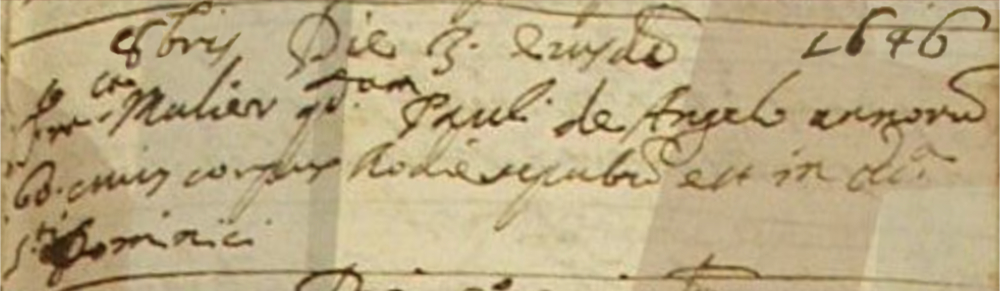 8bris Die 3. eiusdẽ 1646
Mulier qdam Pauli de Angelo annorũ
60. cuius corpus hodie sepultũ est in ecc.a
S.ti Dominici